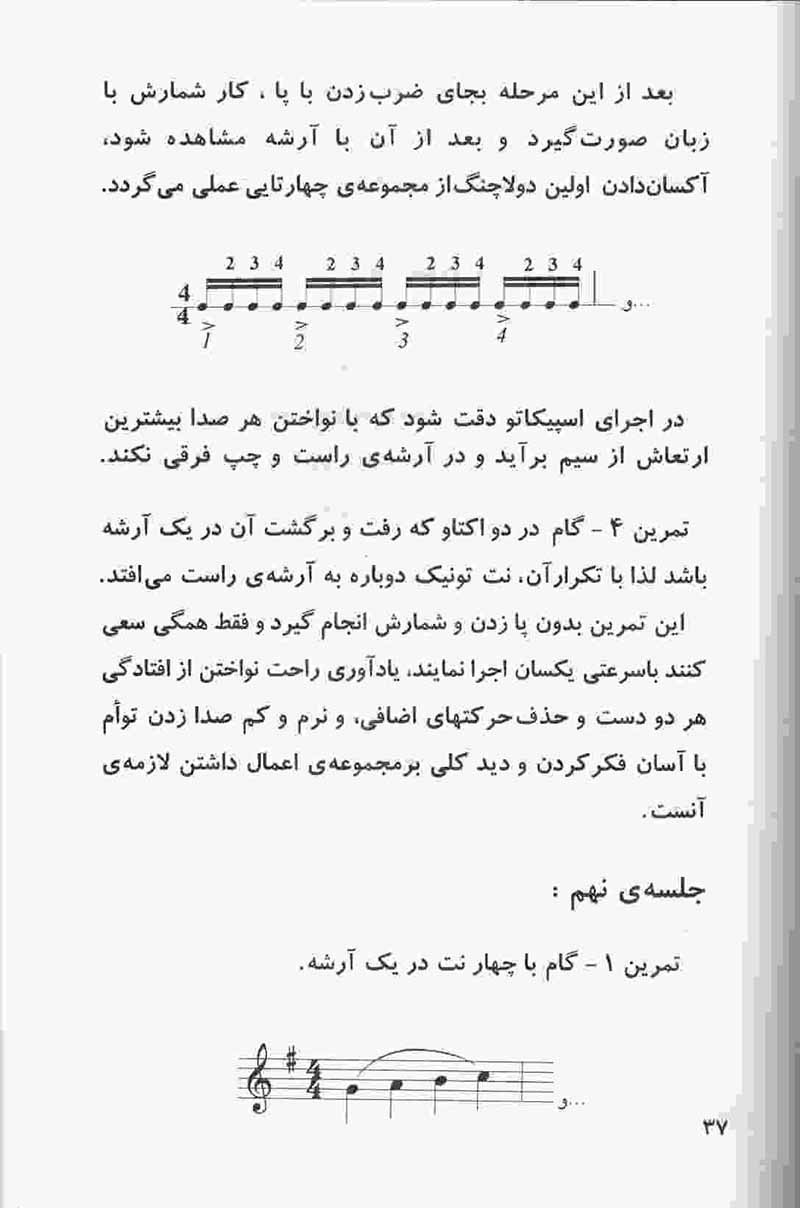 بعد از این مرحله بجای ضرب‌زدن با پا ، کار شمارش با
زبان صورت‌گیرد و بعد از آن با آرشه مشاهده شود،
آکسان‌دادن اولین دولاچنگ‌از مجموعه‌ی چهارتایی عملی می‌گردد.
2 3 4 2 3 4 2 3 4 2 3 4
4
4
و...
> > > >
1 2 3 4
در اجرای اسپیکاتو دقت شود که با نواختن هر صدا بیشترین
ارتعاش از سیم برآید و در آرشه‌ی راست و چپ فرقی نکند.
تمرین ۴ - گام در دو اکتاو که رفت و برگشت آن در یک آرشه
باشد لذا با تکرارآن، نت تونیک دوباره به آرشه‌ی راست می‌افتد.
این تمرین بدون پا زدن و شمارش انجام گیرد و فقط همگی سعی
کنند باسرعتی یکسان اجرا نمایند، یادآوری راحت نواختن از افتادگی
هر دو دست و حذف‌حرکتهای اضافی، و نرم و کم صدا زدن توأم
با آسان فکرکردن و دید کلی برمجموعه‌ی اعمال داشتن لازمه‌ی
آنست.
جلسه‌ی نهم :
تمرین ۱ - گام با چهار نت در یک آرشه.
4
4
و...
۳۷